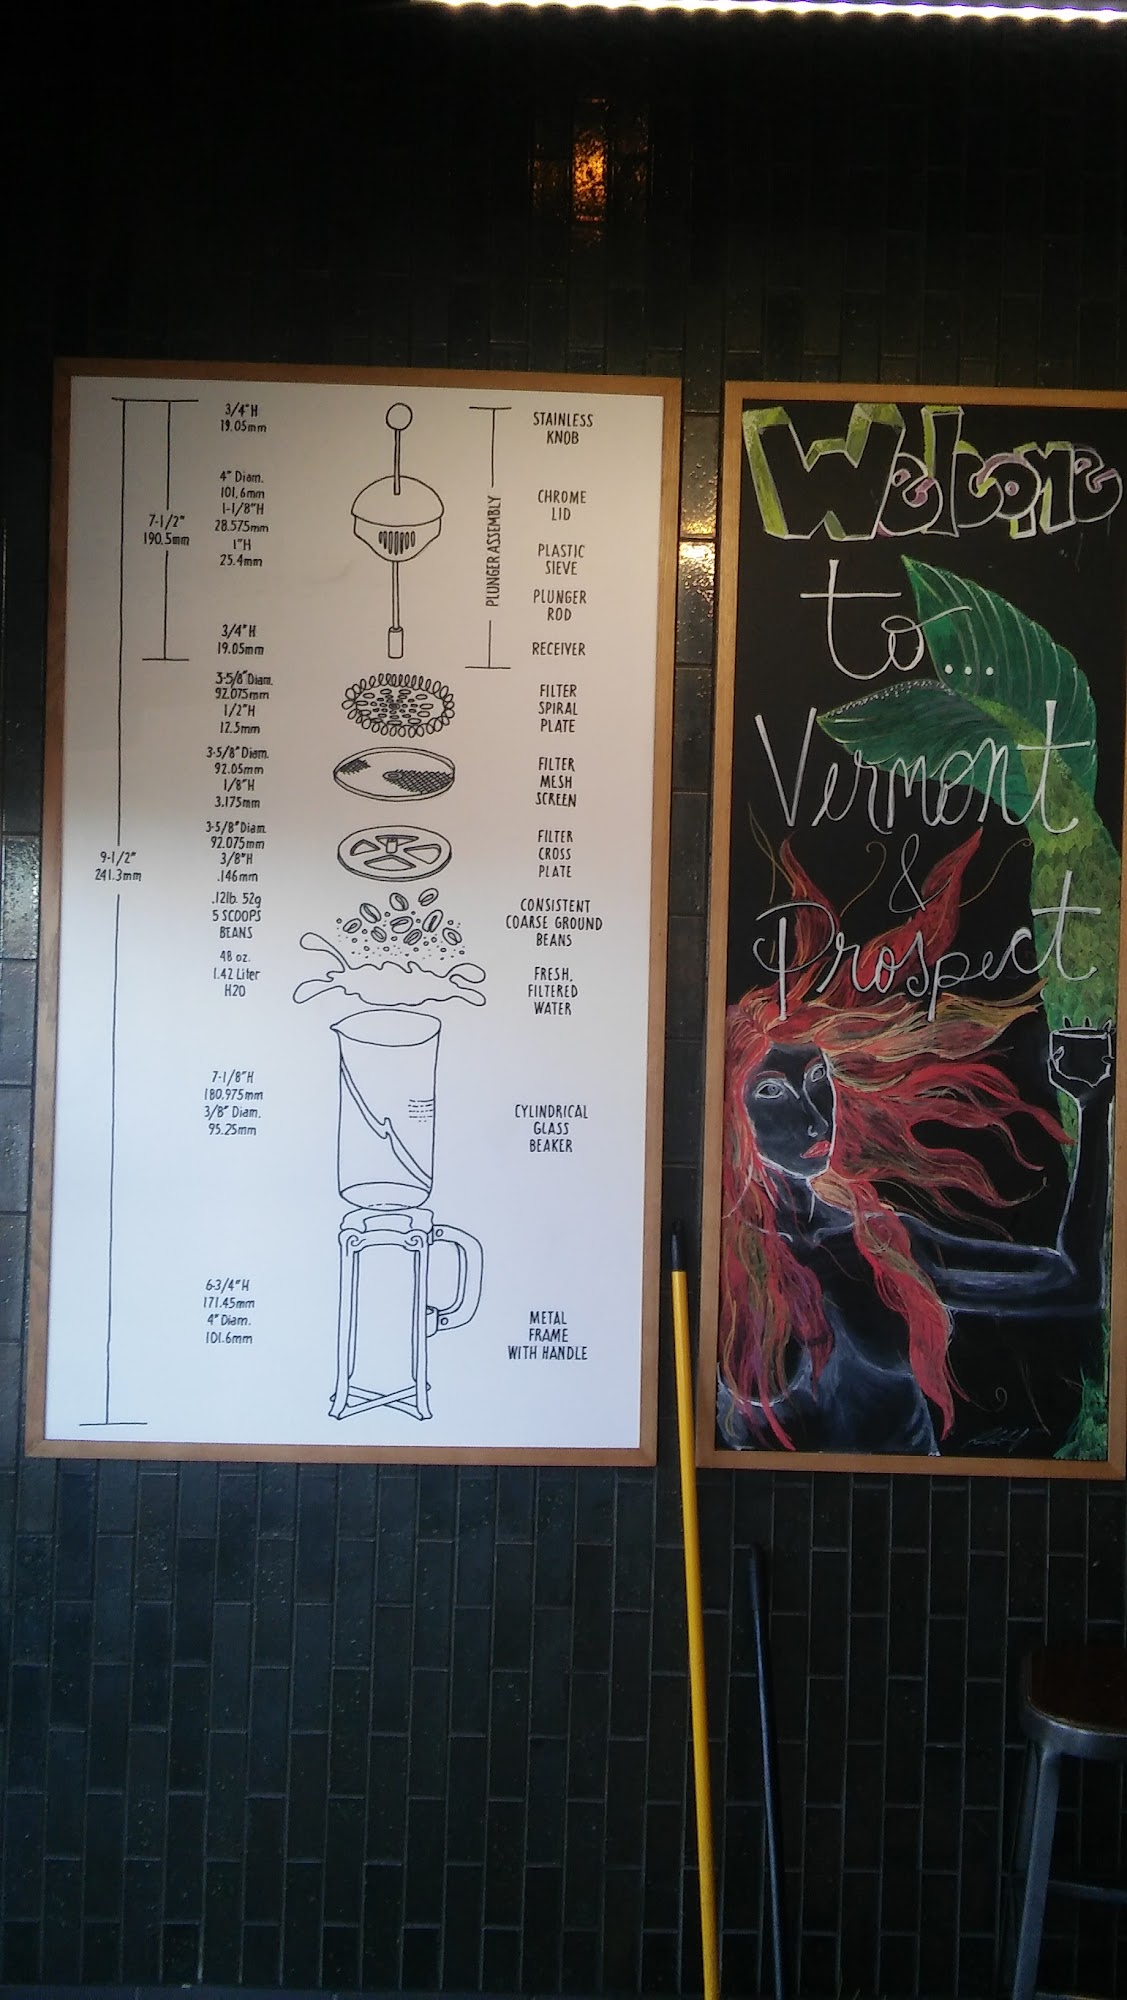 3/4"H
19.05mm
4" Diam.
101,6mm
1-1/8"H
28.575mm
1"H
25.4mm
7-1/2"
190.5mm
3/4"H
19.05mm
3-5/8"Diam.
92.075mm
1/2"H
12.5mm
3-5/8" Diam.
92.05mm
1/8"H
3.175mm
3-5/8"Diam.
92.075mm
3/8"H
.146mm
9-1/2"
241.3mm
.12lb. 52g
5 SCOOPS
BEANS
48 oz.
1.42 Liter
H2O
7-1/8"H
180.975mm
3/8" Diam.
95.25mm
6-3/4"H
171.45mm
4" Diam.
101.6mm
PLUNGER ASSEMBLY
STAINLESS
KNOB
CHROME
LID
PLASTIC
SIEVE
PLUNGER
ROD
RECEIVER
FILTER
SPIRAL
PLATE
FILTER
MESH
SCREEN
FILTER
CROSS
PLATE
CONSISTENT
COARSE GROUND
BEANS
FRESH,
FILTERED
WATER
CYLINDRICAL
GLASS
BEAKER
METAL
FRAME
WITH HANDLE
Welcome
to...
Vermont
&
Prospect